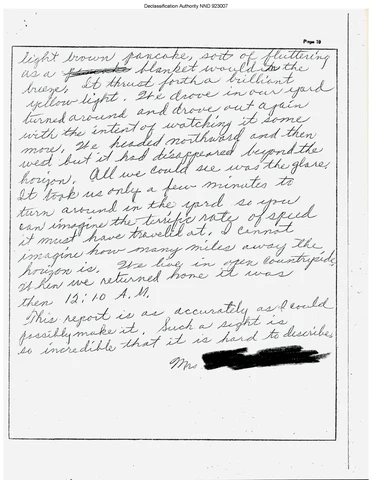 Declassification Authority NND 923007
Page 10
light brown pancake, sort of fluttering
as a blanket would in the
breeze. It thrust forth a brilliant
yellow light. We drove in our yard
turned around and drove out again
with the intent of watching it some
more. We headed northward and then
west but it had disappeared beyond the
horizon. All we could see was the glare.
It took us only a few minutes to
turn around in the yard so you
can imagine the terrific rate of speed
it must have traveled at. I cannot
imagine how many miles away the
horizon is. We live in open countryside.
When we returned home it was
then 12:10 A.M.
This report is as accurately as I could
possibly make it. Such a sight is
so incredible that it is hard to describe.
Mrs